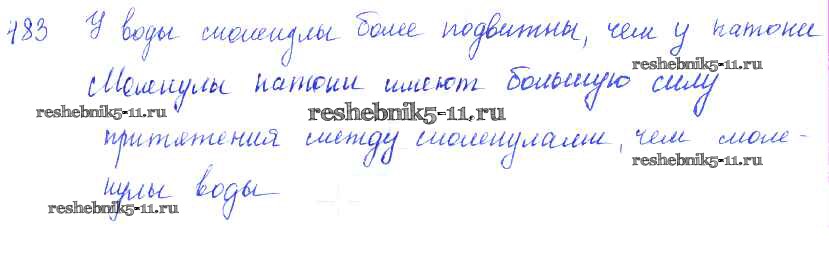 483 У воды молекулы более подвижны, чем у патоки
reshebnik5-11.ru
Молекулы патоки имеют большую силу
reshebnik5-11.ru reshebnik5-11.ru
притяжения между молекулами, чем моле-
reshebnik5-11.ru
кулы воды
reshebnik5-11.ru